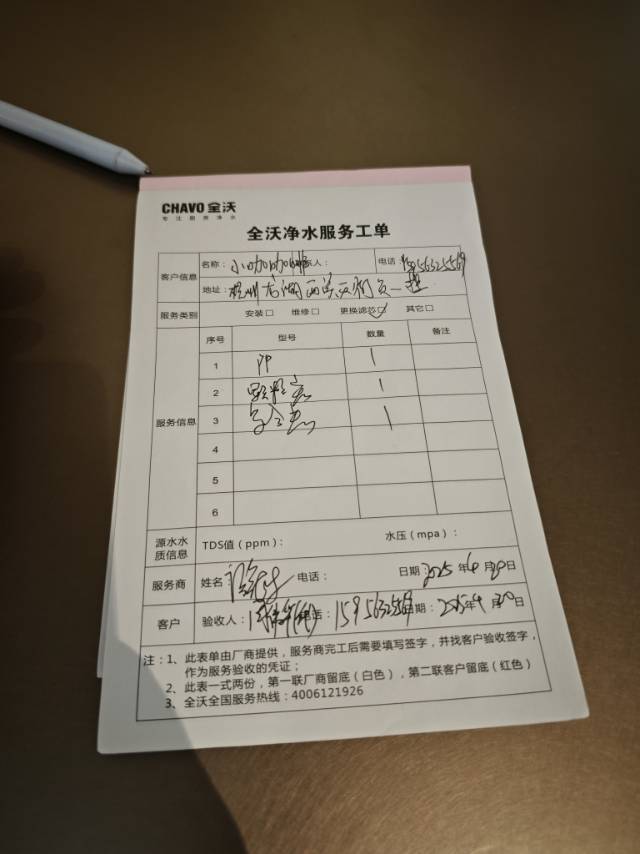 CHAVO 全沃
专注厨房净水
全沃净水服务工单
客户信息 名称： 联系人： 电话：
地址：
服务类别 安装□ 维修□ 更换滤芯□ 其它□
服务信息 序号 型号 数量 备注
1 PP 1
2 颗粒炭 1
3 1
4
5
6
源水水质信息 TDS值（ppm）： 水压（mpa）：
服务商 姓名 电话： 日期：2025年4月30日
客户 验收人： 电话： 日期：2025年4月30日
注：1、此表单由厂商提供，服务商完工后需要填写签字，并找客户验收签字，
作为服务验收的凭证；
2、此表一式两份，第一联厂商留底（白色），第二联客户留底（红色）
3、全沃全国服务热线：4006121926